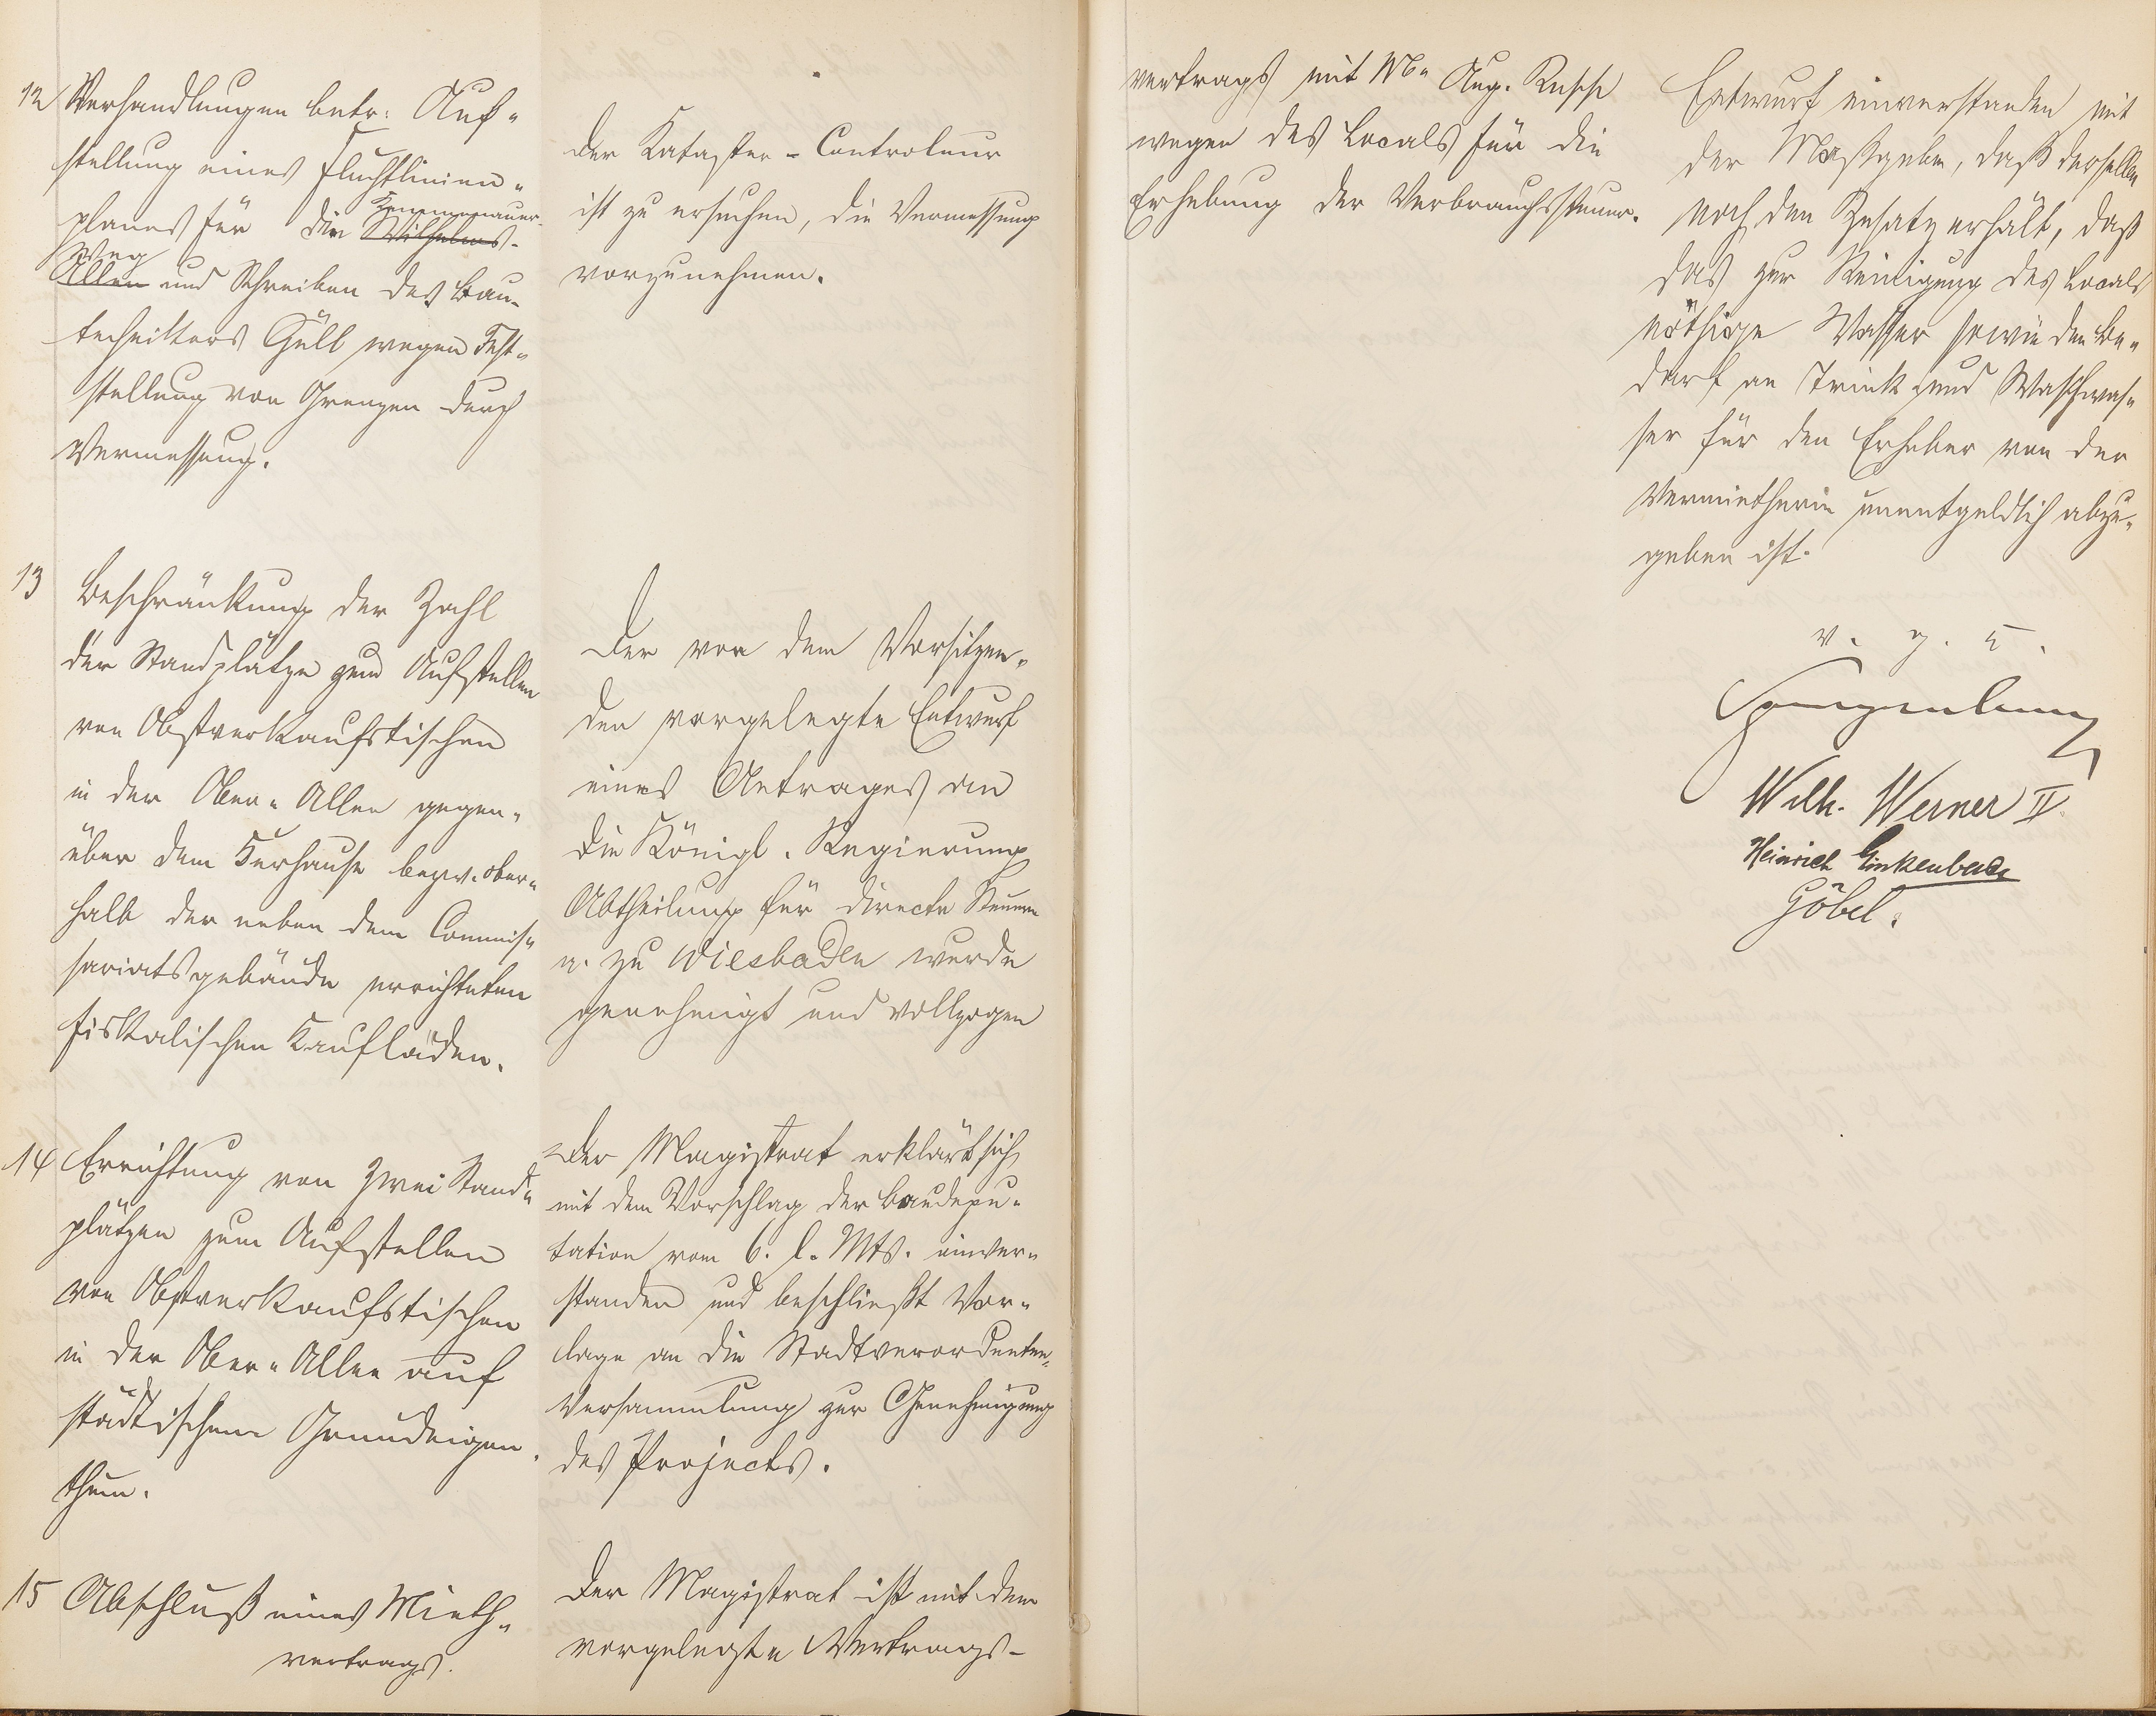 12 Verhandlungen betr: Auf-
stellung eines Fluchtlinien-
planes für die Wilhelms-
Weg
Allee und Schreiben des Bau-
technikers Güll wegen Fest-
stellung von Grenzen durch
Vermessung.
Der Kataster-Controleur
ist zu ersuchen, die Vermessung
vorzunehmen.
13 Beschränkung der Zahl
der Standplätze zum Aufstellen
von Obstverkaufstischen
in der Ober-Allee gegen-
über dem Kurhause bezw. ober-
halb der neben dem Commis-
sariatsgebäude errichteten
fiskalischen Kaufläden.
Der von dem Vorsitzen-
den vorgelegte Entwurf
eines Antrages an
die Königl. Regierung
Abtheilung für directe Steuern
zu Wiesbaden wurde
genehmigt und vollzogen
14 Errichtung von zwei Stand-
plätzen zum Aufstellen
von Obstverkaufstischen
in der Ober-Allee auf
städtischem Grundeigen-
thum.
Der Magistrat erklärt sich
mit dem Vorschlag der Baudepu-
tation vom 6. l. Mts. einver-
standen und beschließt Vor-
lage an die Stadtverordneten-
Versammlung zur Genehmigung
des Projects.
15 Abschluß eines Mieth-
vertrags.
Der Magistrat ist mit dem
vorgelegten Vertrags-
vertrags mit Aug.
wegen des Locals für die
Erhebung der Verbrauchssteuer.
Entwurf einverstanden mit
der Maßgabe, daß derselbe
noch den Zusatz erhält, daß
das zur Reinigung des Locals
nöthige Wasser sowie den Be-
darf an Trink und Waschwas-
ser für den Erheber von der
Vermietherin unentgeldlich abzu-
geben ist.
v. g. u.
Wilh. Werner II.
Heinrich Linkenbach
Göbel.